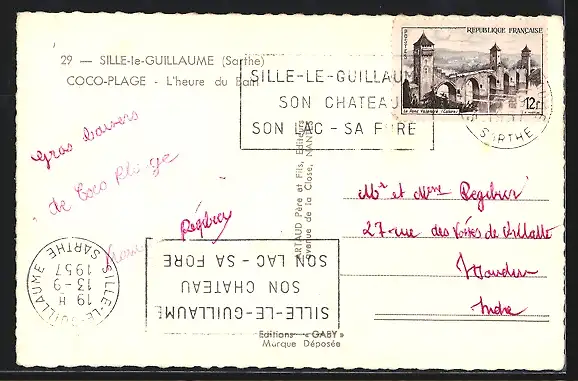 29 — SILLE-le-GUILLAUME (Sarthe)
COCO-PLAGE - L'heure du Bain
RÉPUBLIQUE FRANÇAISE
POSTES
12F
Le Pont Valentré (Cahors)
SILLE-LE-GUILLAUME
SON CHATEAU
SON LAC - SA FORE
SARTHE
Gros baisers
de Coco Plage
ARTAUD Père et Fils, Editeurs
avenue de la Close, NANTES
Mr et Mme
27 rue des
Indre
SILLE-LE-GUILLAUME
SARTHE
19 H
13-9
1957
SILLE-LE-GUILLAUME
SON CHATEAU
SON LAC - SA FORE
Editions « GABY »
Marque Déposée